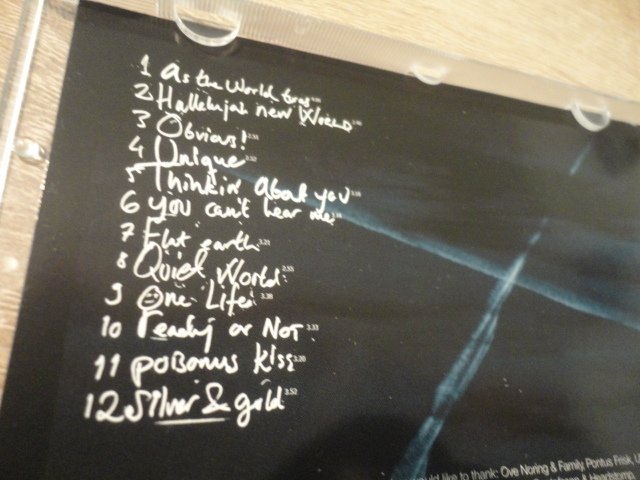 1 As the World turns
2 Hallelujah new World
3 Obvious! 2.55
4 Unique 2.52
5 Thinkin About you
6 you can't hear me
7 Flat earth 3.21
8 Quiet World 2.55
9 One Life 3.38
10 ready or Not 3.33
11 poisonus kiss 3.20
12 Silver & gold 3.52
would like to thank: Ove Noring & Family, Pontus Frisk,
& Heartstomp